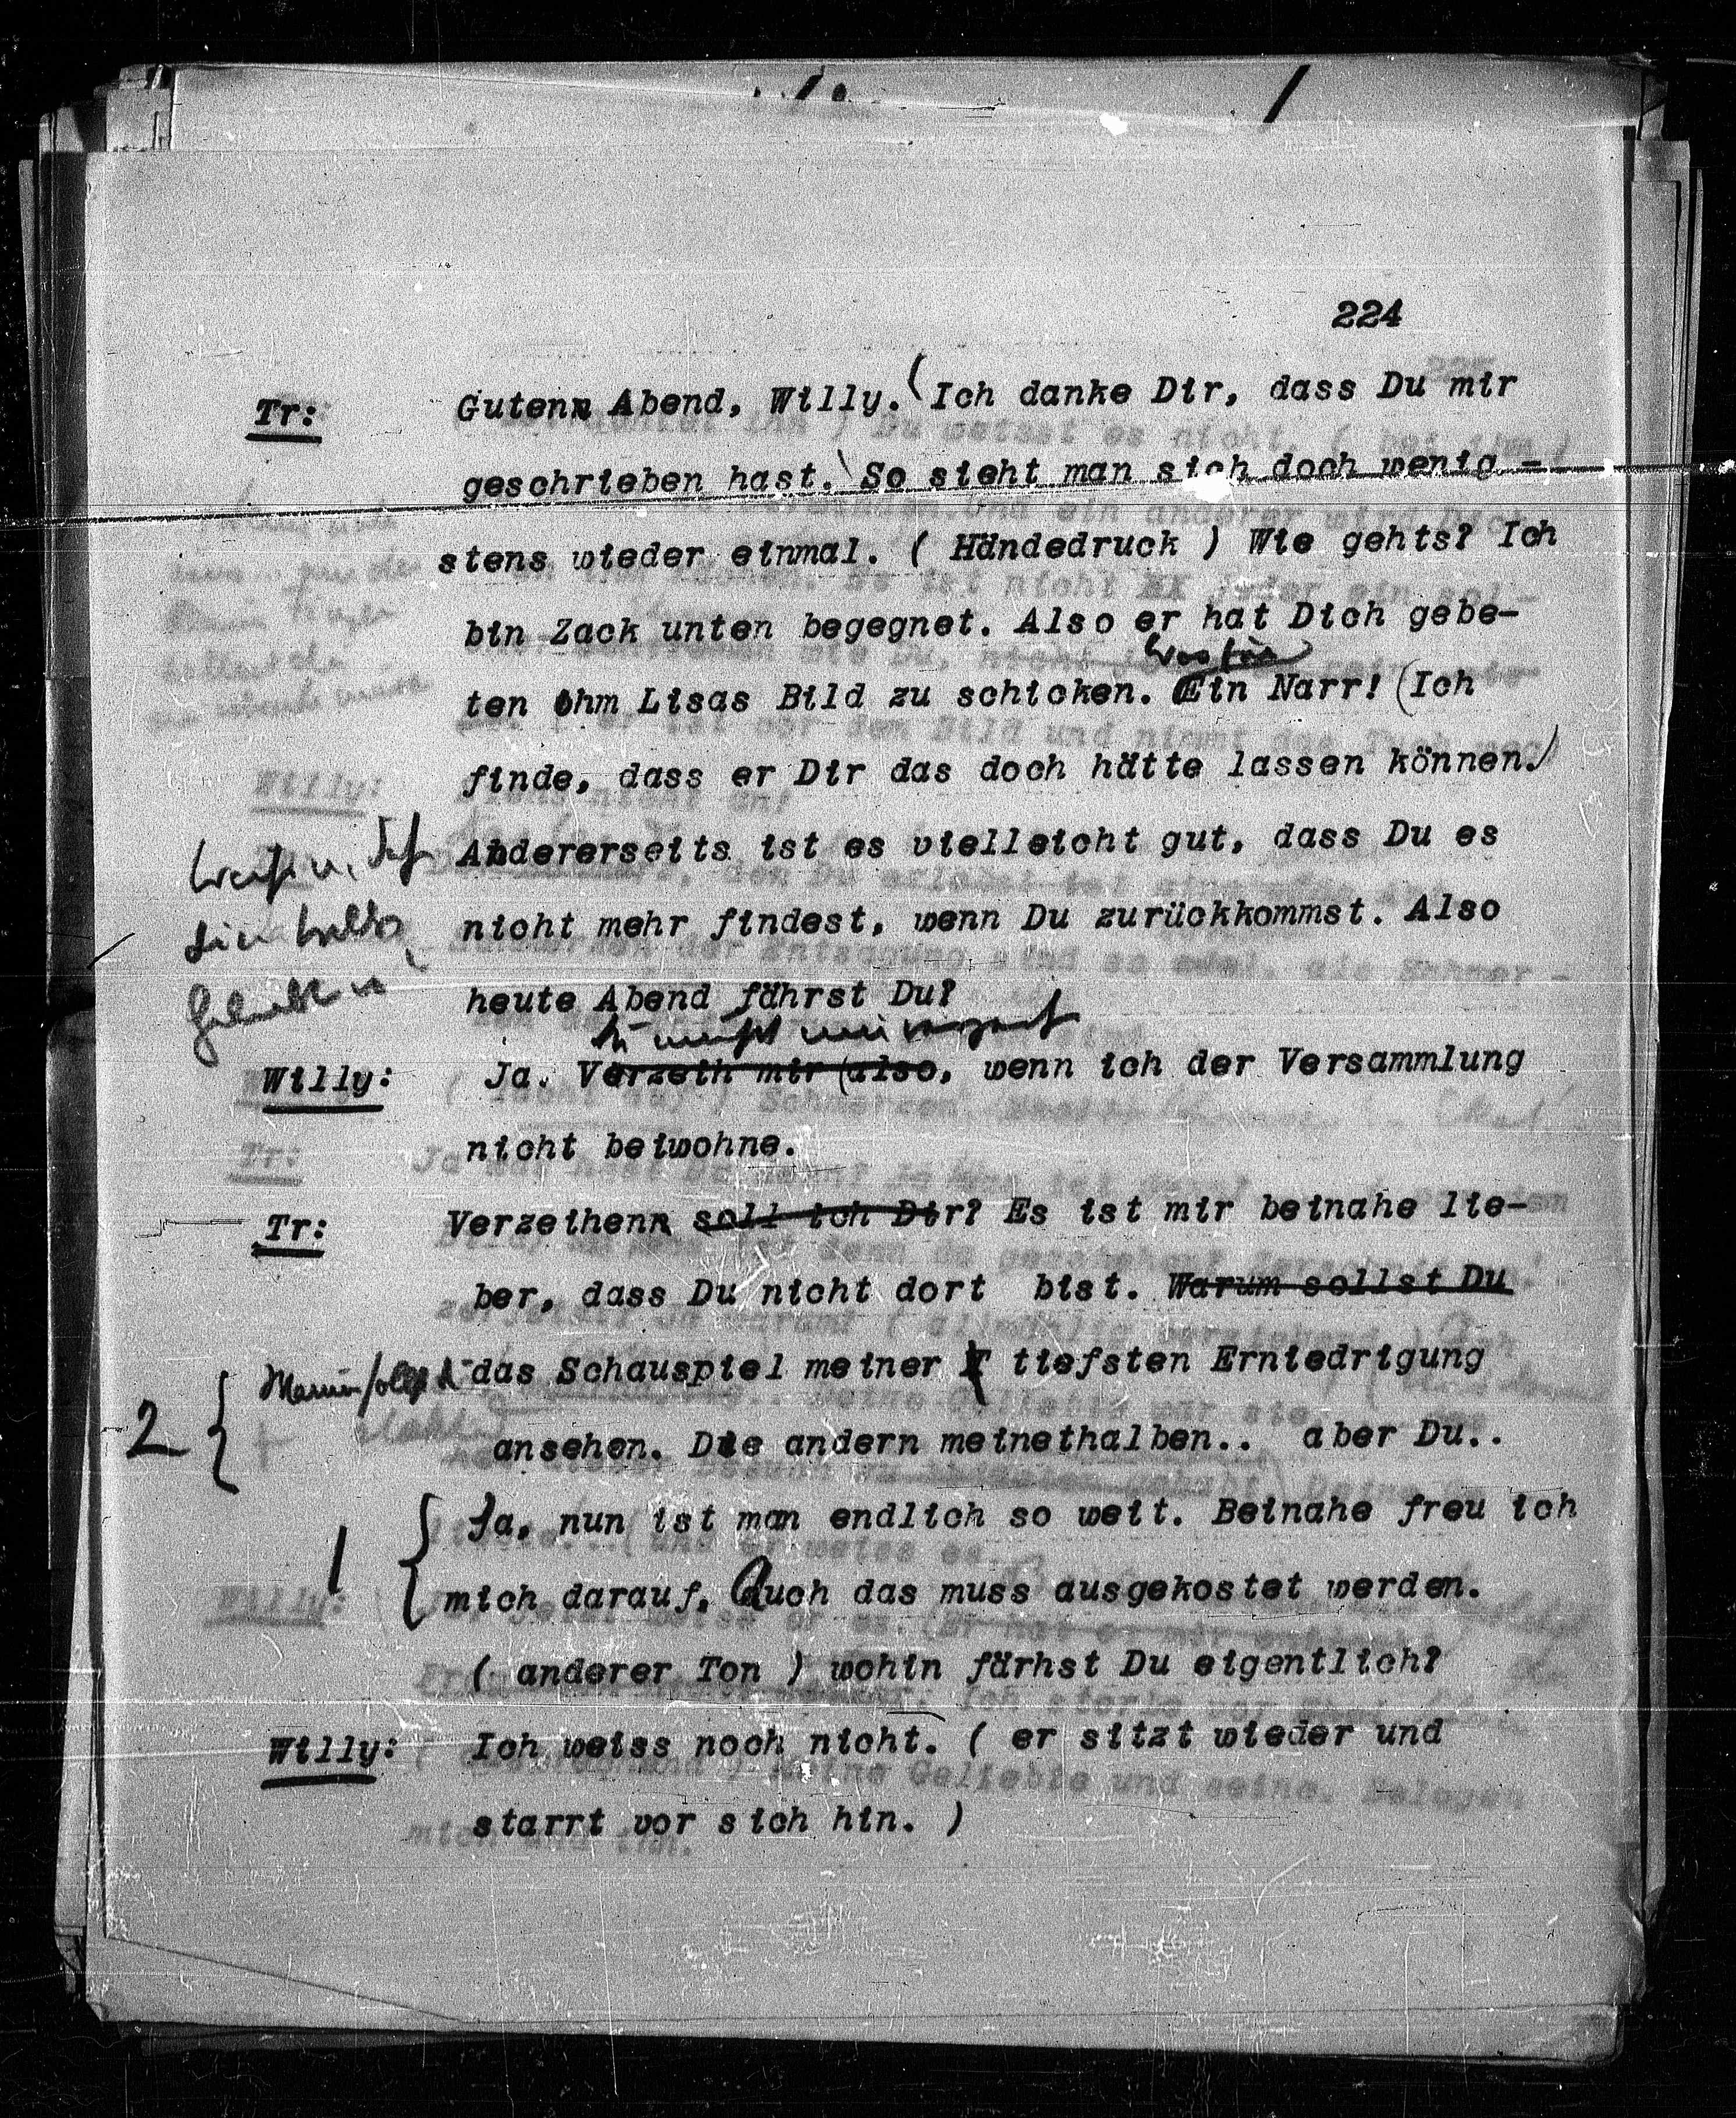 224
Tr: Gutenn Abend, Willy. (Ich danke Dir, dass Du mir
geschrieben hast.) So sieht man sich doch wenig -
stens wieder einmal. ( Händedruck ) Wie gehts? Ich
bin Zack unten begegnet. Also er hat Dich gebe-
Was für
ten ihm Lisas Bild zu schicken. Ein Narr! (Ich
finde, dass er Dir das doch hätte lassen können.)
Andererseits ist es vielleicht gut, dass Du es
nicht mehr findest, wenn Du zurückkommst. Also
heute Abend fährst Du?
Du musst mir
Willy: Ja. Verzeih mir (also, wenn ich der Versammlung
nicht beiwohne.
Tr: Verzeihenn soll ich Dir? Es ist mir beinahe lie-
ber, dass Du nicht dort bist. Warum sollst Du
Warum sollst Du das Schauspiel meiner T tiefsten Erniedrigung
2 ansehen. Die andern meinethalben.. aber Du..
Ja, nun ist man endlich so weit. Beinahe freu ich
1 mich darauf. Auch das muss ausgekostet werden.
( anderer Ton ) wohin färhst Du eigentlich?
Willy: Ich weiss noch nicht. ( er sitzt wieder und
starrt vor sich hin. )